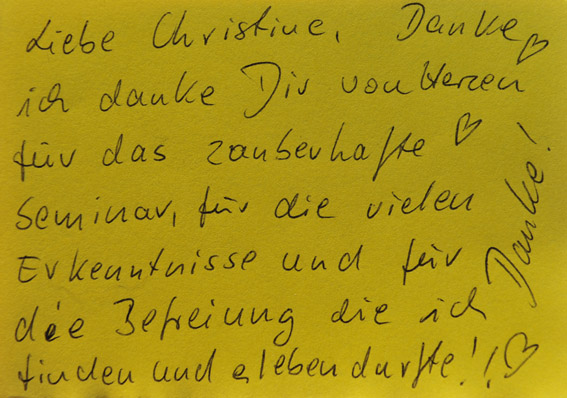 Liebe Christine, Danke ♡
ich danke Dir von Herzen
für das zauberhafte ♡
Seminar, für die vielen
Erkenntnisse und für
die Befreiung die ich
finden und elebendurfte!! ♡
Danke!